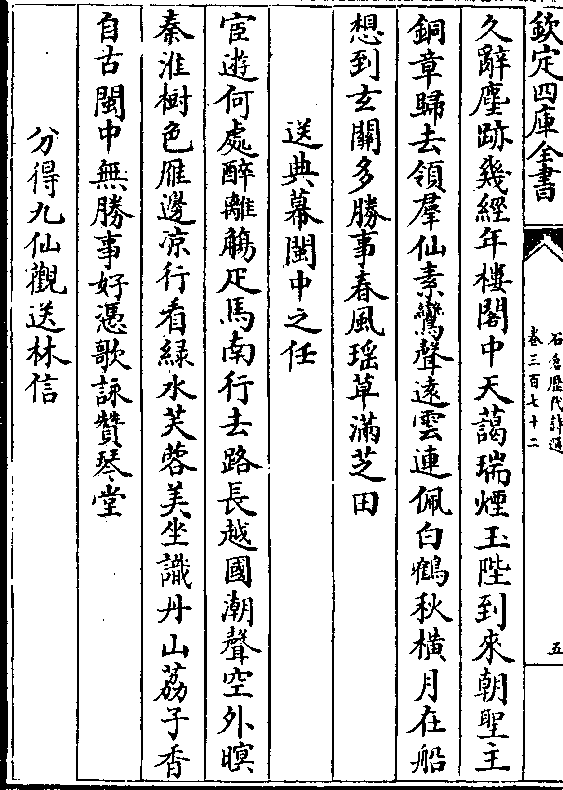 欽定四庫全書
石倉歷代詩選
卷三百七十二
五
久辭塵跡幾經年樓閣中天藹瑞煙玉陛到來朝聖主
銅章歸去領羣仙素鸞聲遠雲連佩白鶴秋橫月在船
想到玄關多勝事春風瑶草滿芝田
送典幕閩中之任
宦遊何處醉離觴疋馬南行去路長越國潮聲空外暝
秦淮樹色雁邊凉行看緑水芙蓉美坐識丹山荔子香
自古閩中無勝事好憑歌詠贊琴堂
分得九仙觀送林信